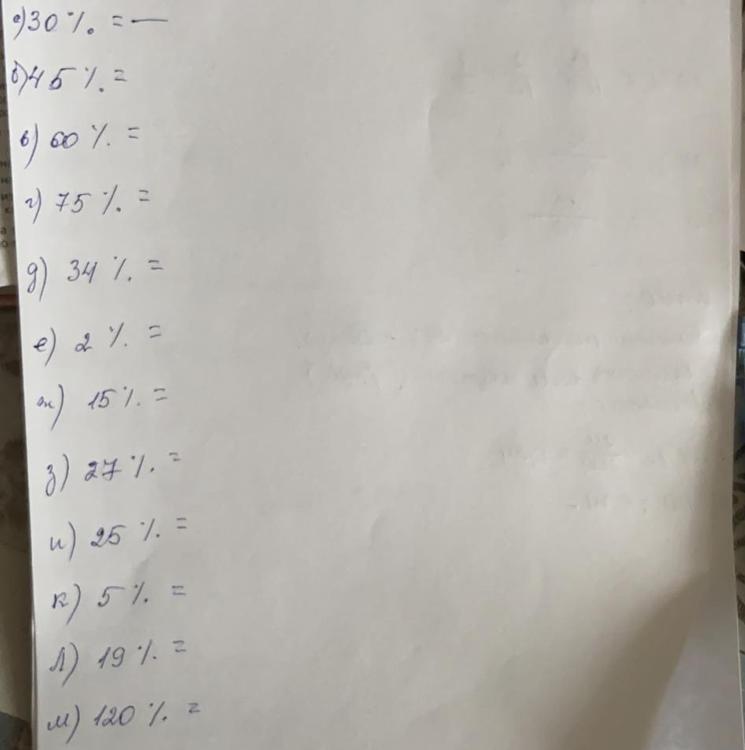 а) 30 % = —
б) 45 % =
в) 60 % =
г) 75 % =
д) 34 % =
е) 2 % =
ж) 15 % =
з) 27 % =
и) 25 % =
к) 5 % =
л) 19 % =
м) 120 % =